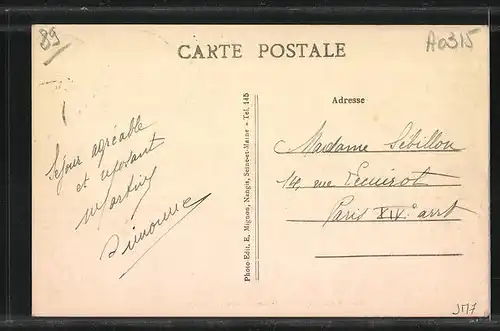 89
A0315
CARTE POSTALE
Séjour agréable
et reposant
Martin
Simonne
Photo-Edit. E. Mignon, Nangis, Seine-et-Marne - Tél. 145
Adresse
Madame Sébillon
14, rue
Paris XIVe arrt
JM7